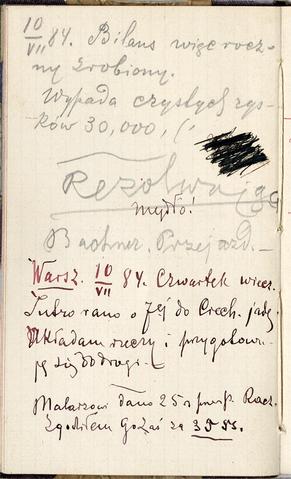 10/VII 84. Bilans więc rocz-
ny zrobiony.
Wypada czystych zys-
ków 30,000,
Rezolwuję
mydło!
Bachner. Przejazd. —
Warsz. 10/VII 84. Czwartek wiecz.
Jutro rano o 7ej do Czech. jadę
Układam rzeczy i przygotowu-
ję się do drogi. —
Malarzowi dano 25 r
Zgodziłem go zaś za 35 rs.